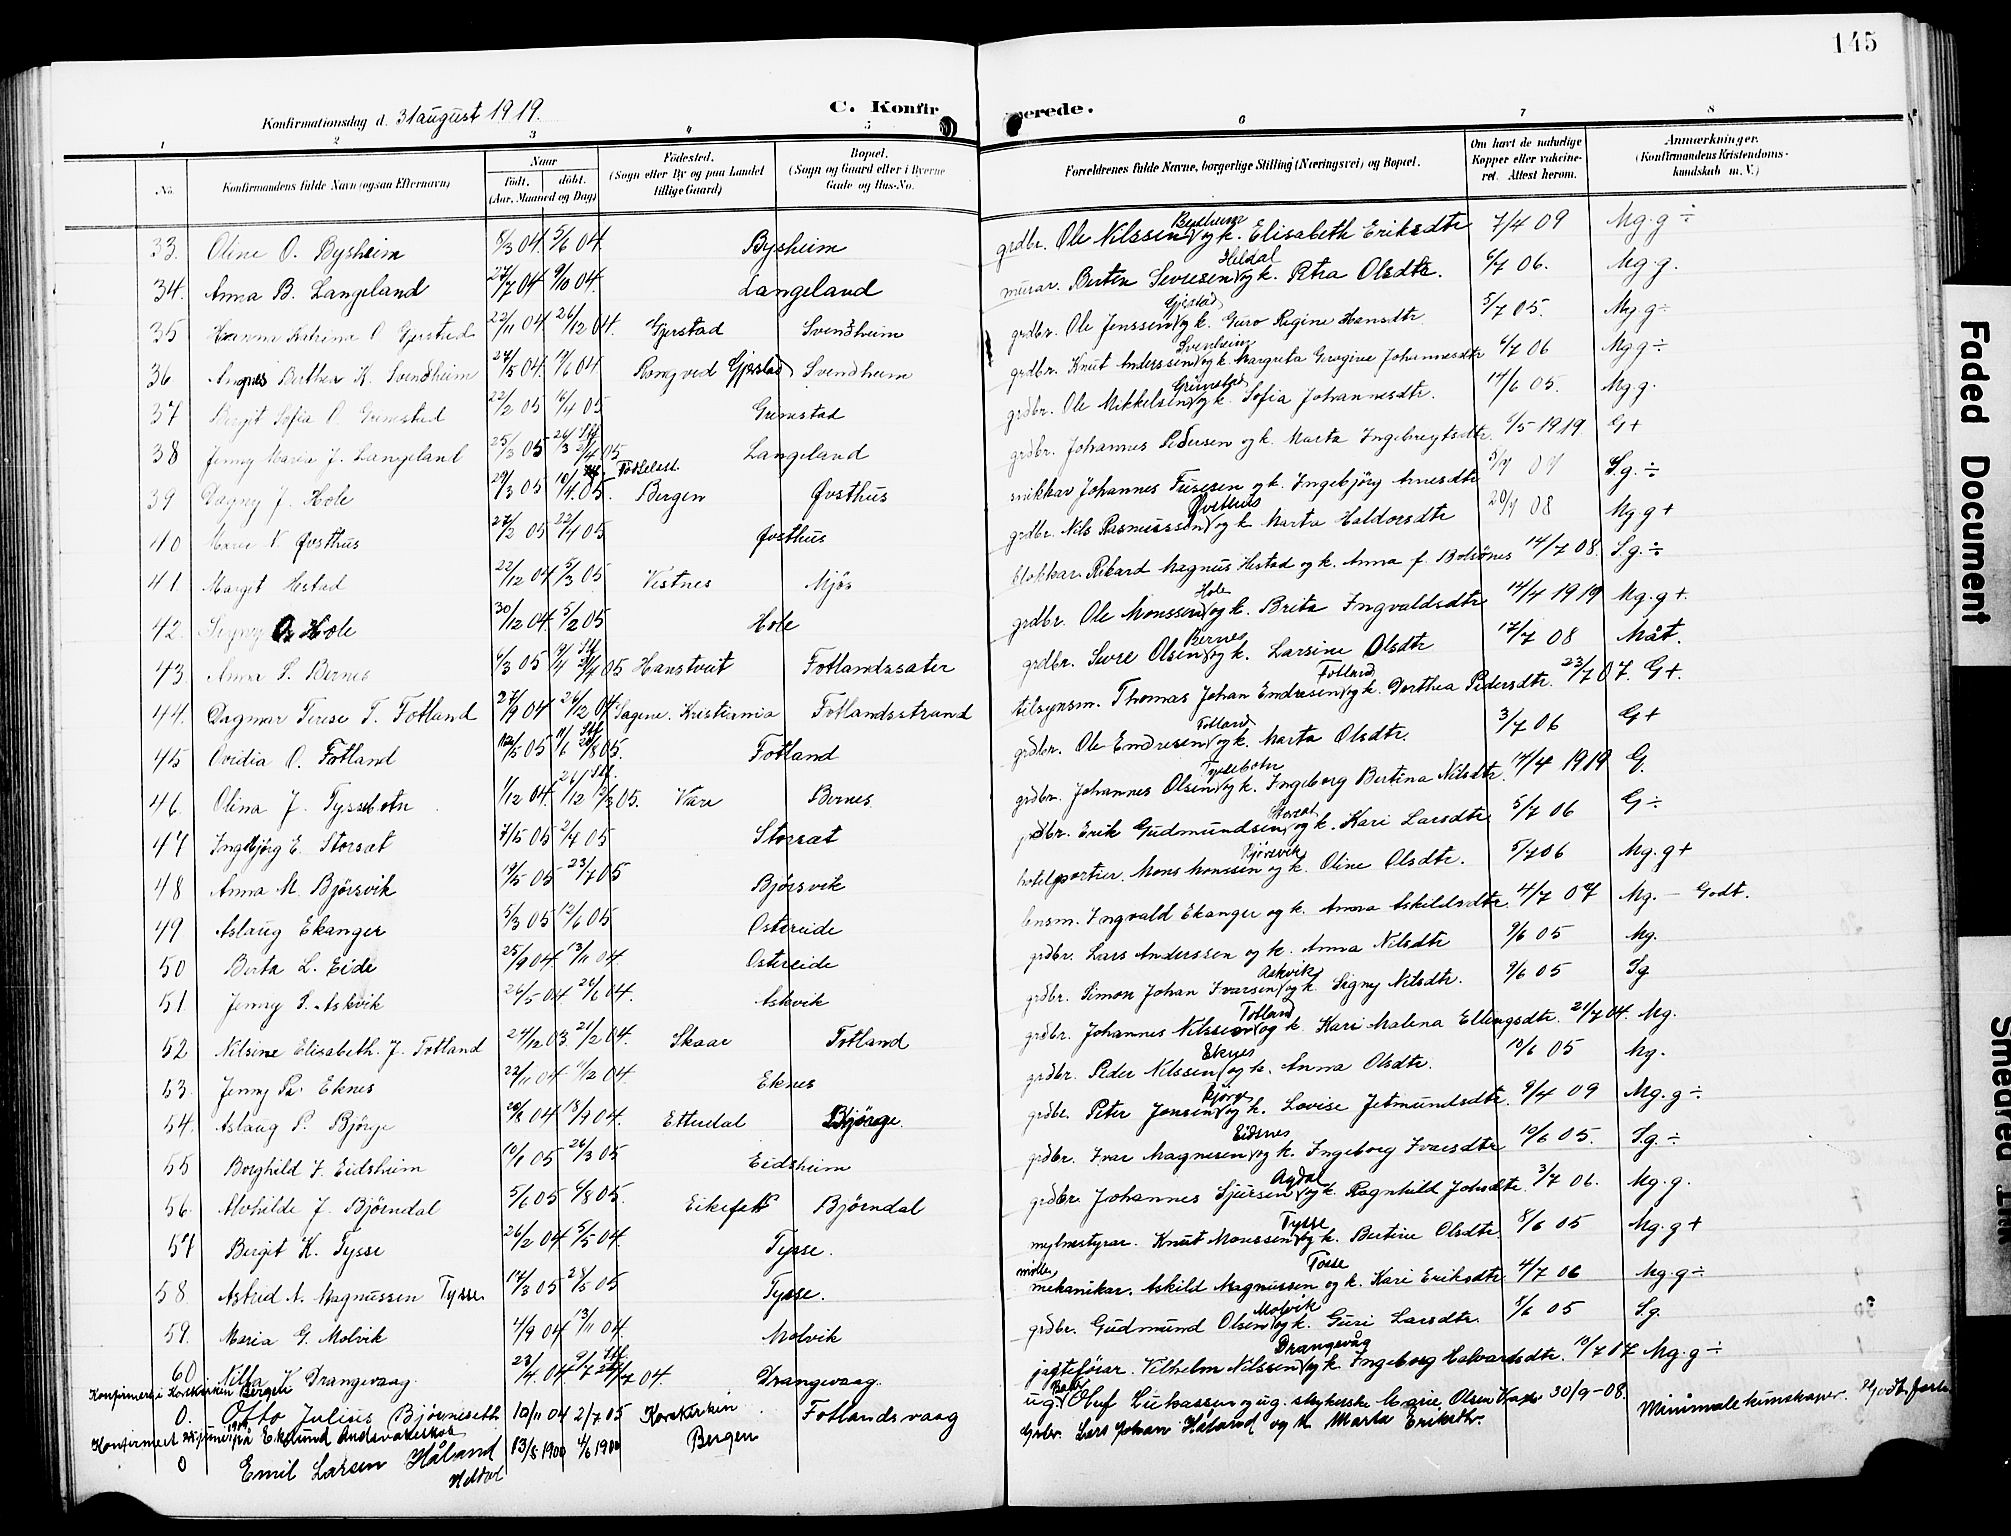 145
Konfirmationsdag d. 31 august 1919.
C. Konfirmerede.
1 2 3 4 5 6 7 8
No. Konfirmandens fulde Navn (ogsaa Efternavn) Naar født. døbt. (Aar, Maaned og Dag) Fødested. (Sogn eller By og paa Landet tillige Gaard) Bopæl. (Sogn og Gaard eller i Byerne Gade og Hus-No. Forældrenes fulde Navne, borgerlige Stilling (Næringsvei) og Bopæl. Om havt de naturlige Kopper eller vakcineret. Attest herom. Anmærkninger. (Konfirmandens Kristendomskundskab m. V.)
33. Oline O. Bysheim 5/3 04 5/6 04. Bysheim grdbr. Ole Nilssen Bysheim og k. Elisabeth Eriksdtr 7/4 09 Mg. g ÷
34. Anna B. Langeland 27/7 04 9/10 04. Langeland murar. Berten Sevresen Heldal og k. Petra Olsdtr. 6/7 06. Mg. g.
35 Hanna Katrina O. Gjerstad 22/11 04 26/12 04. Gjerstad Svendsheim grdbr. Ole Jenssen Gjerstad og k. Guro Regine Hansdtr 5/7 05. Mg. g ÷
36 Agnes Berthea K. Svendsheim 27/5 04 04 Romgved Gjerstad Svendheim grdbr. Knut Anderssen Svenheim og k. Margreta Gurgine Johannesdtr 6/7 06 Mg g ÷
37 Bergit Sofia O. Grimstad 22/2 05 /4 05 Grimstad grdbr. Ole Mikkelsen Grimstad og k. Sofia Johannesdtr. 14/6 05. Mg. g.
38 Jenny Maria J. Langeland 25/3 05 26/3 Stf 21/4 05 Langeland grdbr. Johannes Pedersen og k. Marta Ingebregtsdtr. 6/5 1919 G +
39 Dagny J. Hole 29/3 05 10/4 05. Fødselsst. Bergen Øvsthus snikkar Johannes og k. Ingebjörg Arnesdtr 5/7 07 S.g. ÷
40 Marie N. Øvsthus 27/2 05 22/4 05 Øvsthus grdbr. Nils Rasmussen Øvsthus og k Marta Haldorsdtr 20/7 08 Mg g +
41 Margit Hestad 22/12 04 5/3 05 Vestnes Mjøs blokkar Rikard Magnus Hestad og k. Anna f. Bolsönes 14/7 08. S.g. ÷
42. Signy O. Hole 30/12 04 5/2 05 Hole grdbr. Ole Monssen Hole og k. Brita Ingvaldsdtr 14/4 1919 Mg. g +.
43 Anna S. Bernes 6/3 05 9/4 Stf 05 Hanstveit Fotlandssæter grdbr. Sevre Olsen Bernes og k. Larsine Olsdtr 17/7 08 Måt.
44. Dagmar Terese T. Fotland 27/9 04 26/12 04 Sagene. Kristiania Fotlandsstrand tilsynsm. Thomas Johan Endresen Fotland og k. Dorthea Pedersdtr. 23/7 07. G +.
45 Ovidia O. Fotland 12/5 05 11/6 Stf 05. Fotland grdbr. Ole Endresen Fotland og k. Marta Olsdtr. 3/7 06 G +
46. Olina J. Tyssebotn 1/12 04 26/12 Stf. 12/3 05. Være Bernes grdbr. Johannes Olsen Tyssebotn og k. Ingeborg Bertina Nilsdtr 14/4 1919 G.
47 Ingebjørg E. Storsæt 7/5 05 2/4 05 Storsæt grdbr. Erik Gudmundsen Storsæt og k. Kari Larsdtr 5/7 06 G ÷
48 Anna M. Bjørsvik 19/5 05 23/7 05 Bjørsvik hotelportier. Mons Monssen Bjørsvik og k. Oline Olsdtr. 5/7 06 Mg. g +
49 Aslaug Ekanger 5/3 05 12/6 05 Ostereide lensm. Ingvald Ekanger og k. Anna Askildsdtr 4/7 07 Mg. – Godt.
50 Berta L. Eide 25/9 04. 13/11 04. Ostereide grdbr. Lars Anderssen og k. Anna Nilsdtr 9/6 05 Mg.
51. Jenny S. Askvik 26/5 04 26/6 04. Askvik grdbr. Simon Johan Ivarsen Askvik og k. Signy Nilsdtr. 9/6 05 Sg
52 Nilsine Elisabeth J. Fotland 24/12 03 21/2 04. Skaar Fotland grdbr. Johannes Nilssen Fotland og k. Kari Malena Ellingsdtr. 21/7 04. Mg.
53. Jenny P. Eknes 22/11 04 /12 04. Eknes grdbr. Peder Nilssen Eknes og k. Anna Olsdtr. 10/6 05 Mg.
54. Aslaug P. Bjørge 20/8 04 18/9 04. Ettedal Bjørge grdbr. Peter Jonsen Bjørge og k. Lovise Jetmundsdtr 9/4 09 Mg. g ÷
55 Borghild I. Eidsheim 10/1 05 26/3 05 Eidsheim grdbr. Ivar Magnesen Eidsnes og k. Ingeborg Ivarsdtr 10/6 05. S.g. ÷
56. Alvhilde J. Bjørndal 5/6 05 6/8 05. Eikefet Bjørndal grdbr. Johannes Sjursen Agdal og k. Ragnhild Johsdtr. 3/7 06. Mg. g.
57 Bergit K. Tysse 26/2 04 5/5 04. Tysse. mylnestyrar. Knut Monssen Tysse og k. Bertine Olsdtr. 8/6 05 Mg. g +
58. Astrid A. Magnussen Tysse 14/3 05 28/5 05 Tysse. møller, mekanikar. Askild Magnussen Tosse og k. Kari Eriksdtr 4/7 06 Mg. g ÷
59. Maria G. Molvik 4/9 04 13/11 04. Molvik grdbr. Gudmund Olsen Molvik og k. Guri Larsdtr. 8/6 05 S.g.
60 Nilla V. Drangevaag. 23/4 04 9/7 Stf 24/7 04. Drangevaag. jagtefórar. Vilhelm Nilssen Drangevåg og k. Ingeborg Halvardsdtr. 19/7 07 Mg. g ÷
Konfirmert i Korskirken Bergen
0. Otto Julius Bjørneseth 10/11 04 2/7 05 Korskirken Fotlandsvaag ug. Oluf Lukassen og ug. Marie Olsen 30/9 - 08. Minimale kunskaper. Godt
Konfirmert på Ekelund Andsvakeskole
0 Emil Larsen Håland Heldal 13/5 1900 4/6 1900 Bergen Grbr. Lars Johan Håland og k Marta Eriksdtr.
Faded Document
Smeared Ink